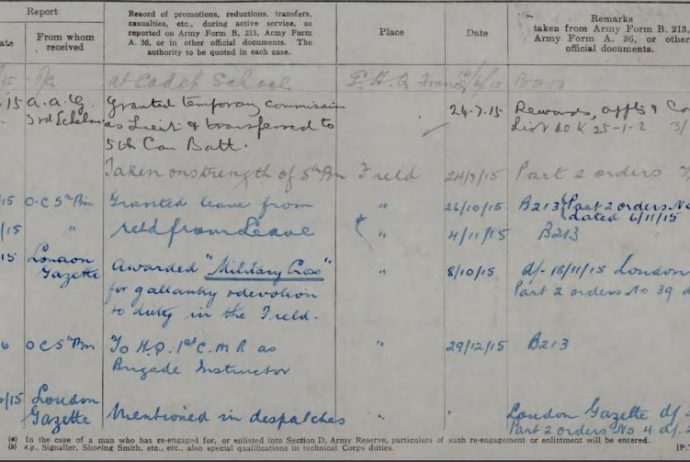 Report
Record of promotions, reductions, transfers,
casualties, etc., during active service, as
reported on Army Form B. 213, Army Form
A. 36, or in other official documents. The
authority to be quoted in each case.
Place
Date
Remarks
taken from Army Form B. 213,
Army Form A. 36, or other
official documents.
ate
From whom
received
at Cadet School
G.H.Q France
/6/15
B213
15
A.A.G
3rd Echelon
Granted temporary commission
as Lieut & transferred to
5th Can Batt.
24.7.15
Rewards, appts &
List 10 K 25-1-2
Taken on strength of 5th Bn
Field
24/7/15
Part 2 orders
/15
O.C 5th Bn
Granted leave from
"
26/10/15
B213
Part 2 orders No
dated 6/11/15
/15
"
retd from Leave
"
4/11/15
B213
15
London
Gazette
Awarded "Military Cross"
for gallantry & devotion
to duty in the Field.
"
8/10/15
d/- 18/11/15 London
Part 2 orders No 39 d
6
O C 5th Bn
To H.Q. 1st C.M.R as
Brigade Instructor
"
29/12/15
B213
/15
London
Gazette
Mentioned in despatches
"
"
London Gazette d/-
Part 2 orders No 4 d/-
(a) In the case of a man who has re-engaged for, or enlisted into Section D, Army Reserve, particulars of such re-engagement or enlistment will be entered.
(b) e.g., Signaller, Shoeing Smith, etc., etc., also special qualifications in technical Corps duties.
[P.